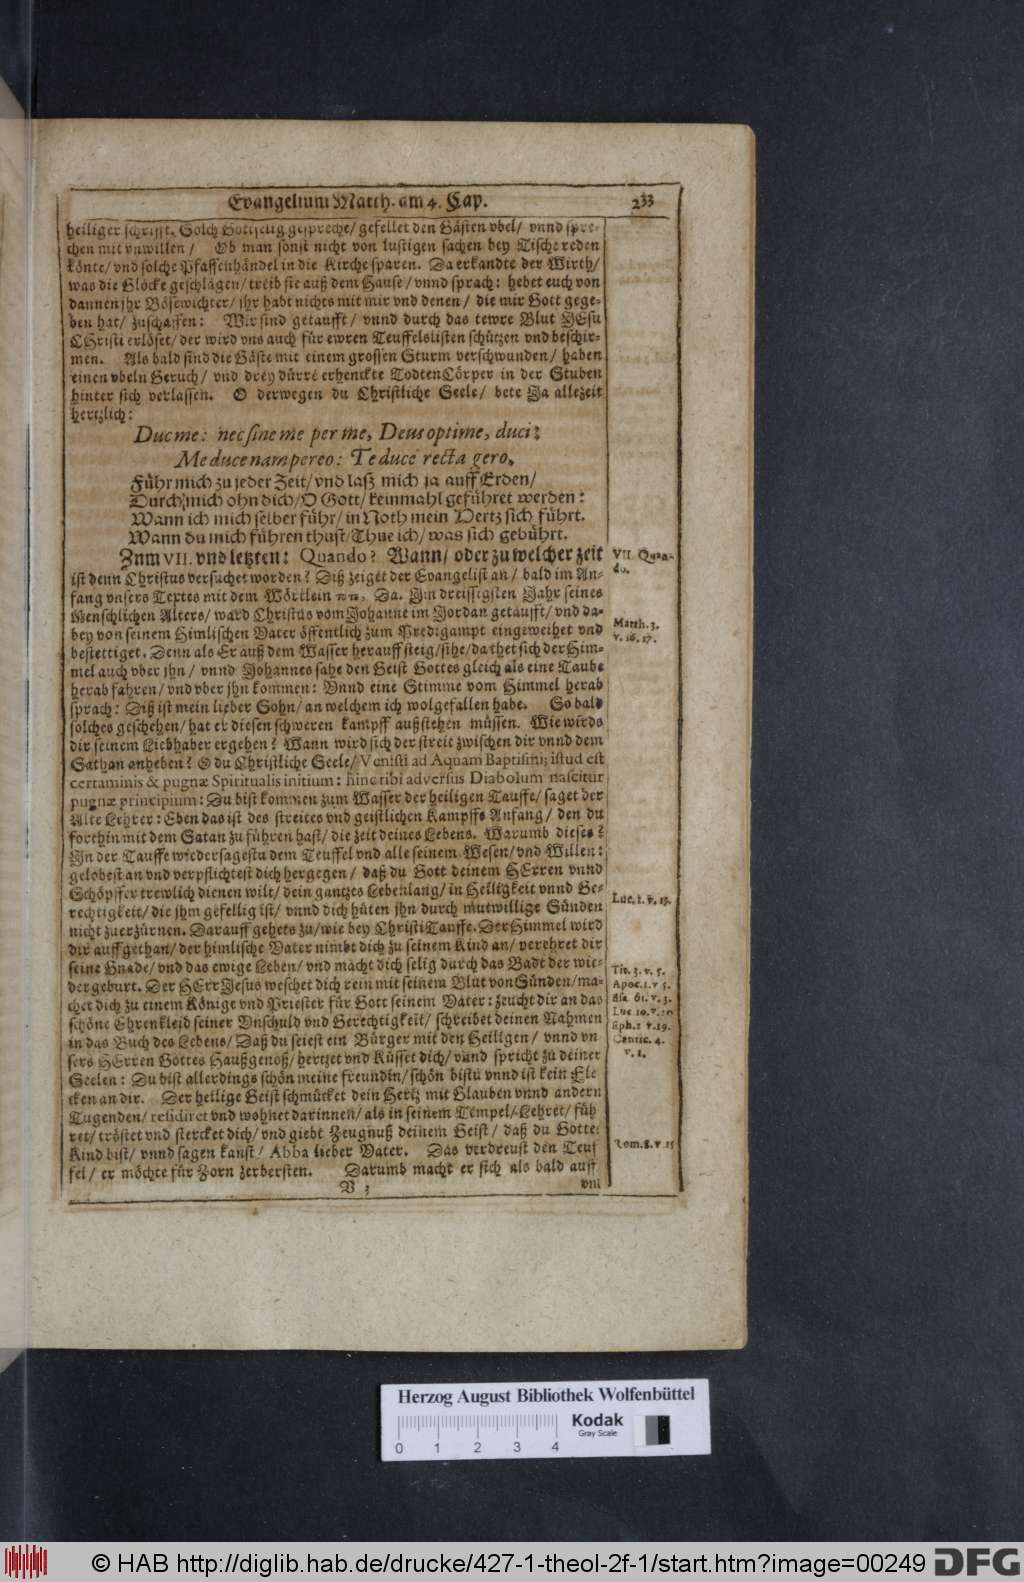 Evangelium Matth. am 4. Cap.
233
heiliger schrifft. Solch Gottselig gespreche/ gefellet den Gästen vbel/ vnnd spre-
chen mit vnwillen/ Ob man sonst nicht von lustigen sachen bey Tische reden
könte/ vnd solche Pfaffenhändel in die Kirche sparen. Da erkandte der Wirth/
was die Glöcke geschlagen/ treib sie auß dem Hause/ vnnd sprach: hebet euch von
dannen jhr Bösewichter/ jhr habt nichts mit mir vnd denen/ die mir Gott gege-
ben hat/ zuschaffen: Wir sind getaufft/ vnnd durch das tewre Blut JEsu
CHristi erlöset/ der wird vns auch für ewren Teuffelslisten schützen vnd beschir-
men. Als bald sind die Gäste mit einem grossen Sturm verschwunden/ haben
einen vbeln Geruch/ vnd drey dürre erhenckte TodtenCörper in der Stuben
hinter sich verlassen. O derwegen du Christliche Seele/ bete Ja allezeit
hertzlich:
Duc me: nec sine me per me, Deus optime, duci:
Me duce nam pereo: Te duce recta gero.
Führ mich zu jeder Zeit/ vnd laß mich ja auff Erden/
Durch mich ohn dich/ O Gott/ keinmahl geführet werden:
Wann ich mich selber führ/ in Noth mein Hertz sich führt.
Wann du mich führen thust/ Thue ich/ was sich gebührt.
Znm VII. vnd letzten: Quando? Wann/ oder zu welcher zeit
VII. Quan-
do.
ist denn Christus versuchet worden? Diß zeiget der Evangelist an/ bald im An-
fang vnsers Textes mit dem Wörtlein Da. Im dreissigsten Jahr seines
Menschlichen Alters/ ward Christus vom Johanne im Jordan getaufft/ vnd da-
Matth. 3.
v. 16. 17.
bey von seinem Himlischen Vater öffentlich zum Predigampt eingeweihet vnd
bestettiget. Denn als Er auß dem Wasser herauff steig/ sihe/ da thet sich der Him-
mel auch vber jhn/ vnnd Johannes sahe den Geist Gottes gleich als eine Taube
herab fahren/ vnd vber jhn kommen: Vnnd eine Stimme vom Himmel herab
sprach: Diß ist mein lieber Sohn/ an welchem ich wolgefallen habe. So bald
solches geschehen/ hat er diesen schweren kampff außstehen müssen. Wie wirds
dir seinem Liebhaber ergehen? Wann wird sich der streit zwischen dir vnnd dem
Sathan anheben? O du Christliche Seele/ Venisti ad Aquam Baptismi; istud est
certaminis & pugnæ Spiritualis initium: hinc tibi adversus Diabolum nascitur
pugnæ principium: Du bist kommen zum Wasser der heiligen Tauffe/ saget der
Alte Lehrer: Eben das ist des streites vnd geistlichen Kampffs Anfang/ den du
forthin mit dem Satan zu führen hast/ die zeit deines Lebens. Warumb dieses?
In der Tauffe wiedersagestu dem Teuffel vnd alle seinem Wesen/ vnd Willen:
gelobest an vnd verpflichtest dich hergegen/ daß du Gott deinem HErren vnnd
Schöpffer trewlich dienen wilt/ dein gantzes Lebenlang/ in Heiligkeit vnnd Ge-
rechtigkeit/ die jhm gefellig ist/ vnnd dich hüten jhn durch mutwillige Sünden
Luc. 1. v. 15.
nicht zuerzürnen. Darauff gehets zu/ wie bey Christi Tauffe. Der Himmel wird
dir auffgethan/ der himlische Vater nimbt dich zu seinem Kind an/ verehret dir
seine Gnade/ vnd das ewige Leben/ vnd macht dich selig durch das Badt der wie-
Tit. 3. v. 5.
dergeburt. Der HErr Jesus weschet dich rein mit seinem Blut von Sünden/ ma-
Apoc. 1. v 5.
chet dich zu einem Könige vnd Priester für Gott seinem Vater: zeucht dir an das
Esa. 61. v. 3.
schöne Ehrenkleid seiner Vnschuld vnd Gerechtigkeit/ schreibet deinen Nahmen
Luc 10. v. 20
in das Buch des Lebens/ Daß du seiest ein Bürger mit den Heiligen/ vnnd vn
Eph. 2 v. 19.
sers HErren Gottes Haußgenoß/ hertzet vnd Küsset dich/ vnnd spricht zu deiner
Cantic. 4.
v. 1.
Seelen: Du bist allerdings schön meine freundin/ schön bistu vnnd ist kein Fle
cken an dir. Der heilige Geist schmücket dein Hertz mit Glauben vnnd andern
Tugenden/ residiret vnd wohnet darinnen/ als in seinem Tempel/ Lehret/ füh
ret/ tröstet vnd stercket dich/ vnd giebt Zeugnuß deinem Geist/ daß du Gottes
Kind bist/ vnnd sagen kanst/ Abba lieber Vater. Das verdreust den Teuf
Rom. 8. v 15
fel/ er möchte für Zorn zerbersten. Darumb macht er sich als bald auff
V 3
vnd
Herzog August Bibliothek Wolfenbüttel
0 1 2 3 4
Kodak
Gray Scale
© HAB http://diglib.hab.de/drucke/427-1-theol-2f-1/start.htm?image=00249
DFG